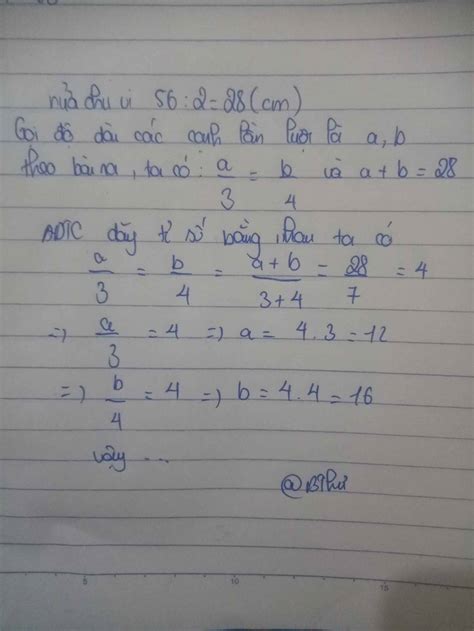 nửa chu vi 56 : 2 = 28 (cm)
Gọi độ dài các cạnh lần lượt là a, b
theo bài ra, ta có: a/3 = b/4 và a + b = 28
ADTC dãy tỉ số bằng nhau ta có
a/3 = b/4 = a + b/3 + 4 = 28/7 = 4
=> a/3 = 4 => a = 4 . 3 = 12
=> b/4 = 4 => b = 4 . 4 = 16
vậy ...
@BThư
5 10 15